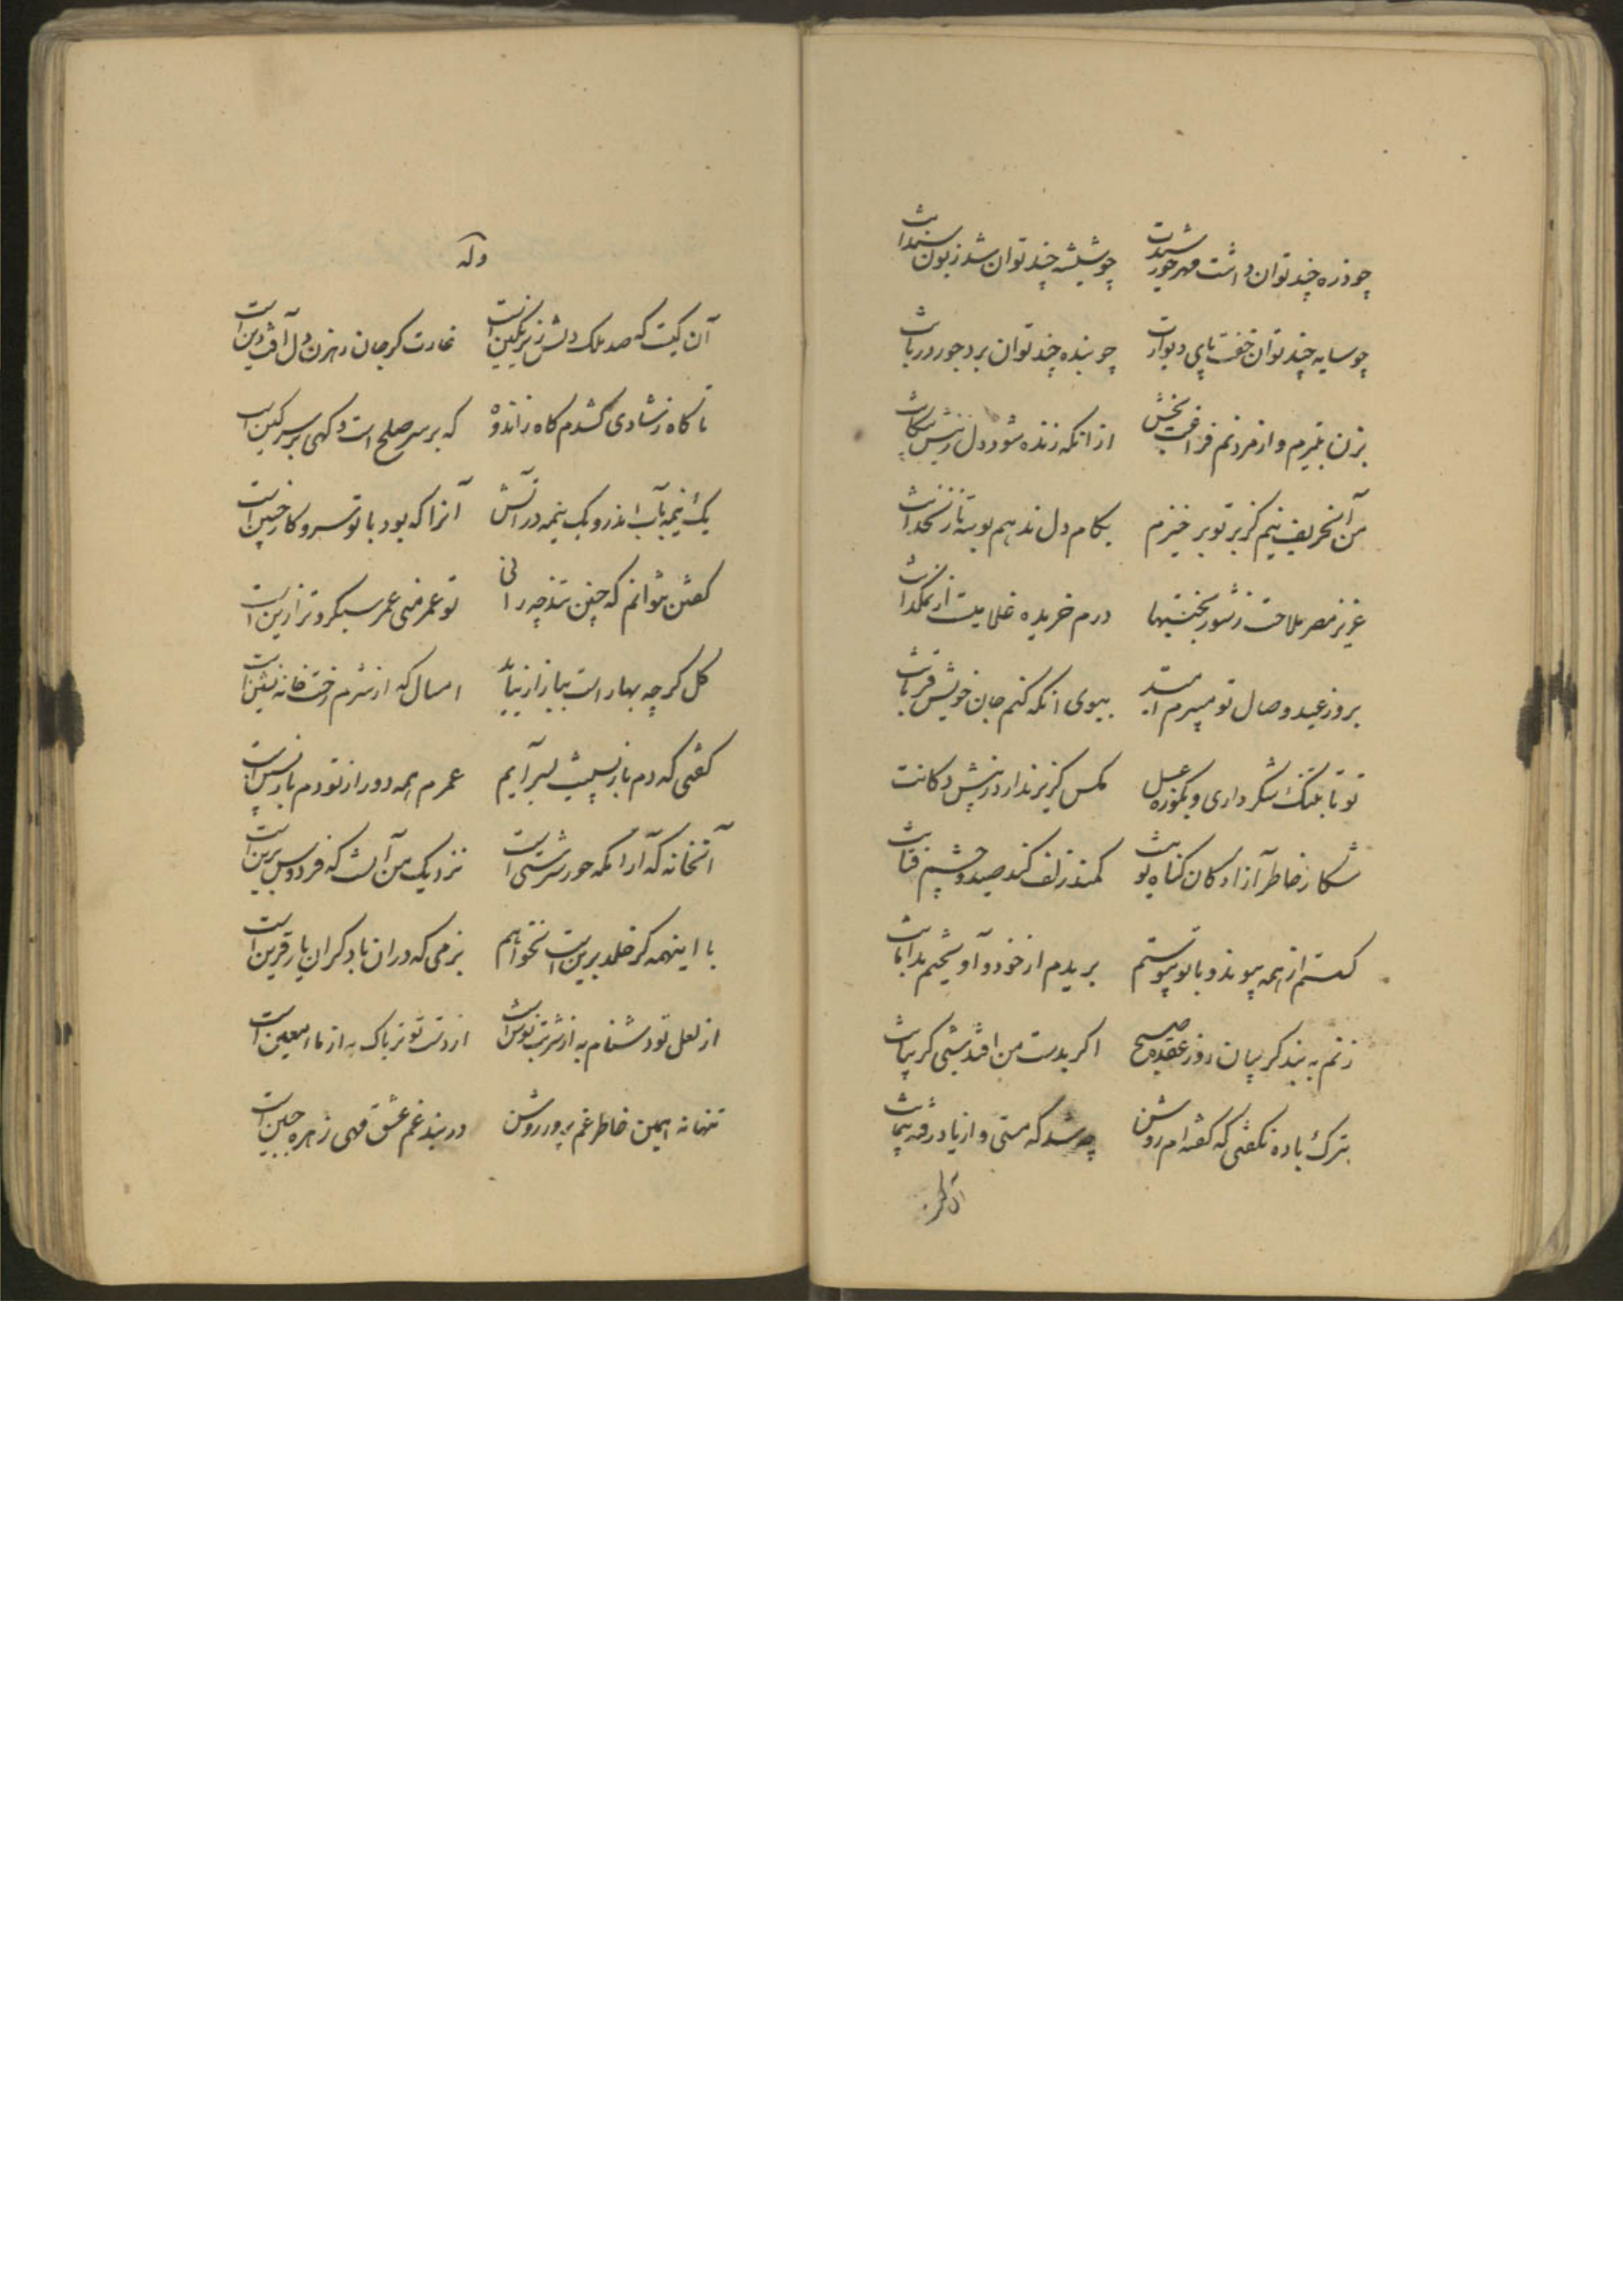 چو ذره چند توان داشت مهر خورشیدت چو شیشه چند توان شد زبون سندانت
چو سایه چند توان خفت پای دیوارت چو بنده چند توان برد جور دربانت
بزن بتیرم و از مردنم فراغت بخش از انکه زنده شود دل ز نیش پیکانت
من آنحریف نیم کز بر تو برخیزم بکام دل ندهم بوسه تا زنخدانت
عزیز مصر ملاحت ز شور بختیها درم خریده غلامیست از نمکدانت
بروز عید وصال تو میبرم امید ببوی انکه کنم جان خویش قربانت
تو تا بتنگ شکر داری و بکوزه عسل مکس کزیر ندارد ز پیش دکانت
شکار خاطر آزادکان کناه تو نیست کمند زلف کند صید و چشم فتانت
کسستم از همه پیوند و با تو پیوستم بریدم از خود و آویختم بدامانت
زنم به بند کریبان روز عقده صبح اکر بدست من افتد شبی کریبانت
بترک باده نکفتی که کفته ام روشن چه شد که مستی و از یاد رفته پیمانت
آن کیست
وله
آن کیست که صد ملک دلش زیر نکین است غارت کر جان رهزن دل آفت دین است
تا کاه ز شادی کشدم کاه ز اندوه که بر سر صلح است و کهی بر سر کین است
یک نیمه بآب اندر و یک نیمه در آتش آنرا که بود با تو سر و کار چنین است
کفتن نتوانم که چنین تند چه رانی تو عمر منی عمر سبکرو تر ازین است
کل کرچه بهار است ببازار نیاید امسال که از شرم رخت خانه نشین است
کفتی که دم بازپسینت بسر آیم عمرم همه دور از تو دم بازپسین است
آنخانه که آرامکه حور سرشتی است نزدیک من آنست که فردوس برین است
با اینهمه کر خلد برین است نخواهم بزمی که در ان با دکران یار قرین است
از لعل تو دشنام به از شربت نوش است از دست تو تریاک به از ماء معین است
تنها نه همین خاطر غم پرور روشن در بند غم عشق مهی زهره جبین است